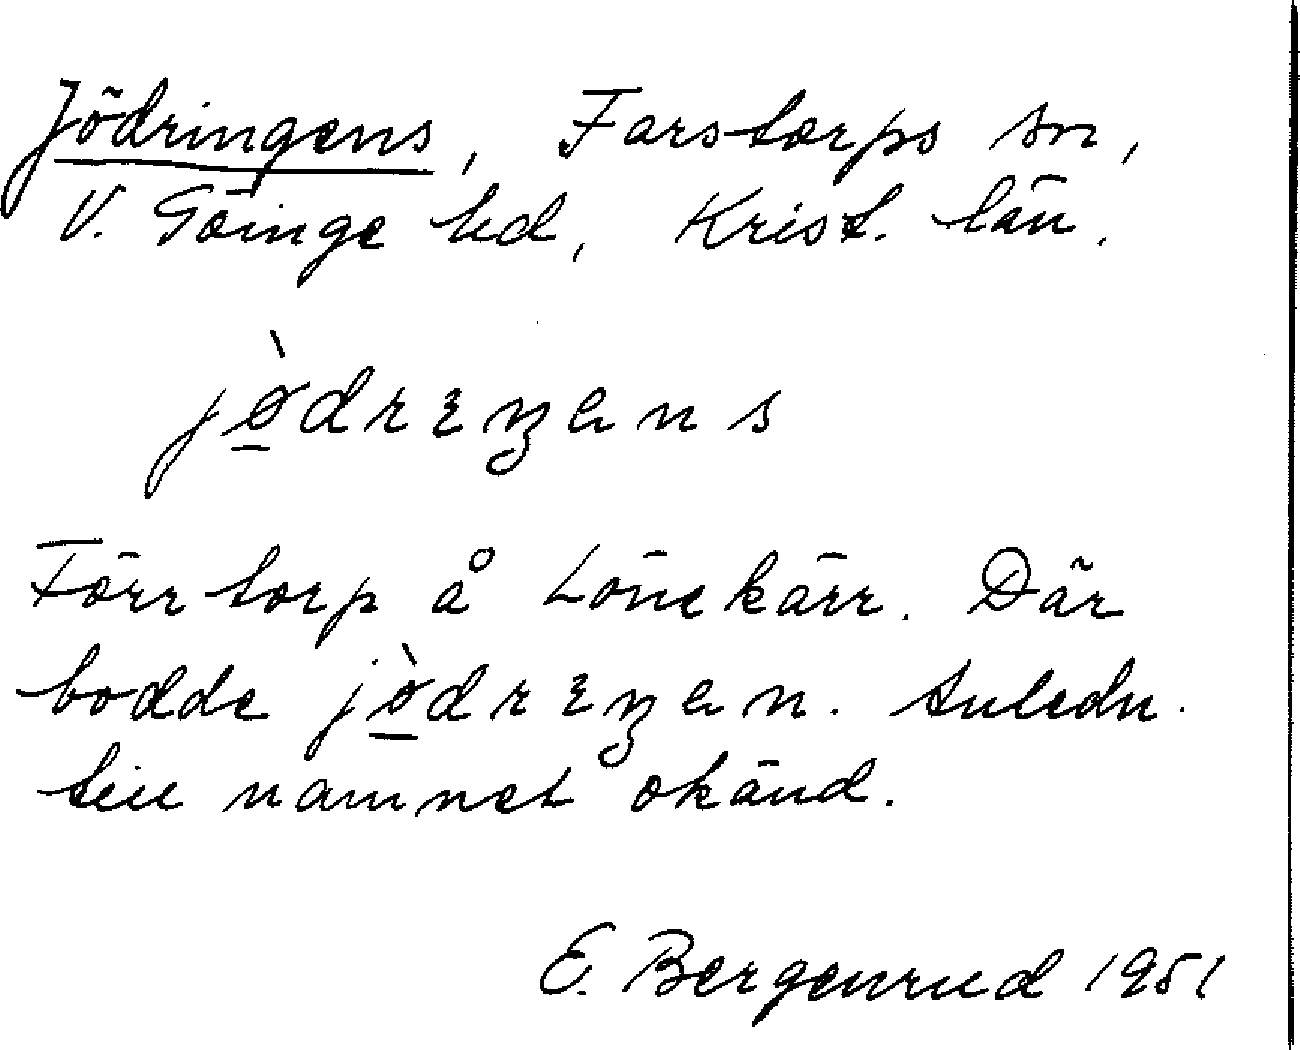 Jödringens, Farstorps sn,
V. Göinge hd, Krist. län.
jø̠̀drɪŋəns
Förr torp å Lönekärr. Där
bodde jø̠̀drɪŋən. Anledn.
till namnet okänd.
E. Bergenrud 1951